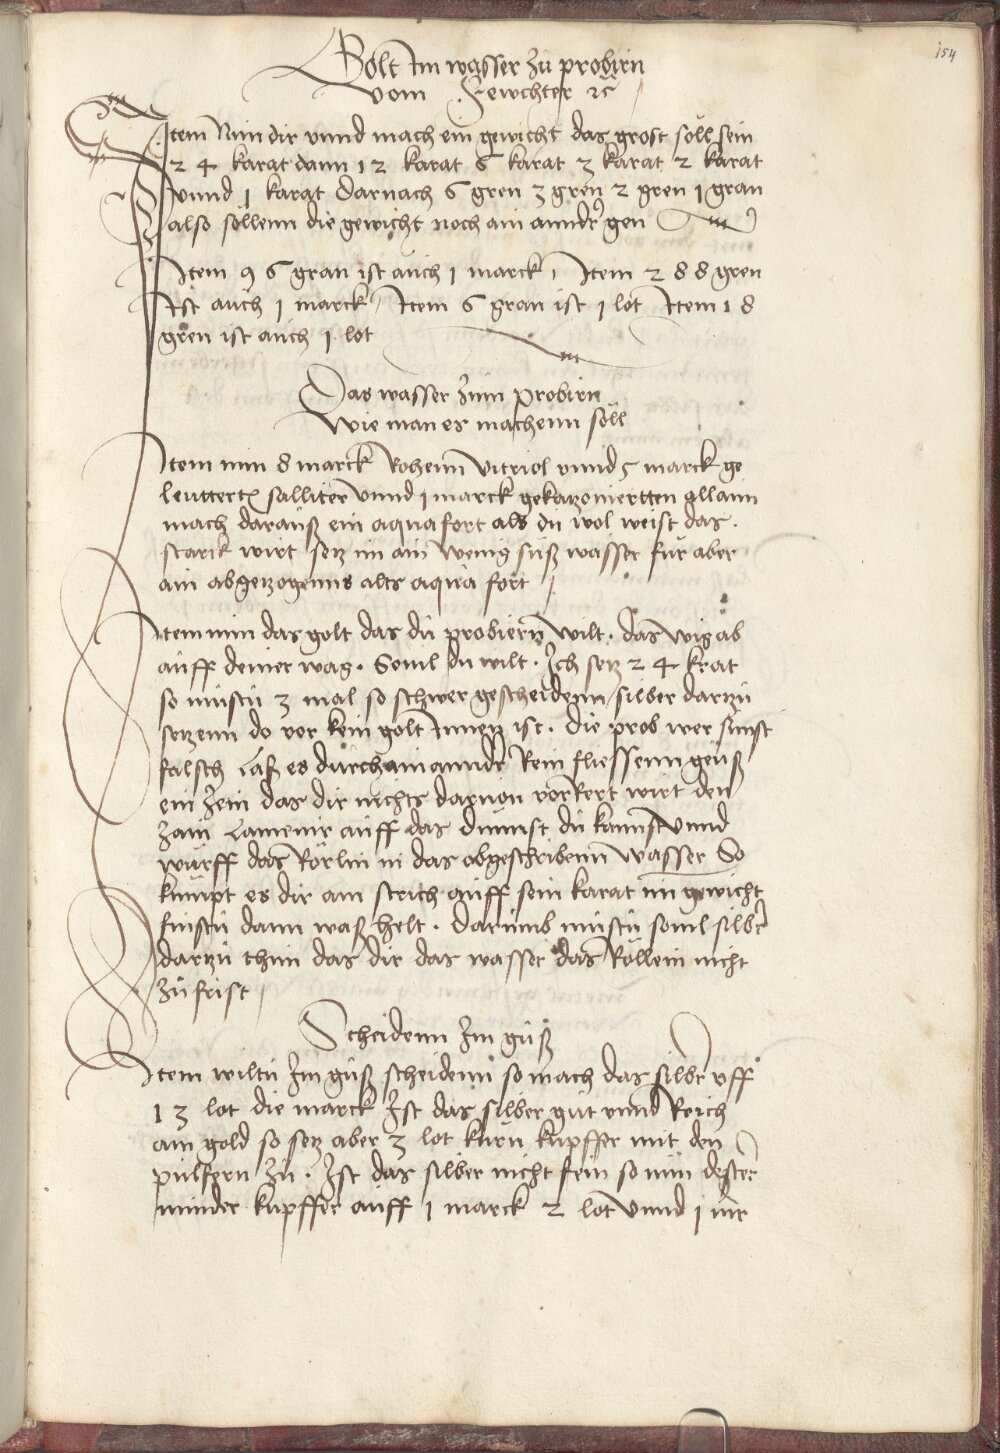 154
Golt Im wasser zu probirn
vom Gewchter ⁊c
Item Nim dir vnnd mach ein gewicht das grost soll sein
24 karat dann 12 karat 6 karat 3 karat 2 karat
vnnd 1 karat Darnach 6 gren 3 gren 2 gren 1 gran
also sollenn die gewicht noch am anndr gen
Item 96 gran ist auch 1 marck, Item 288 gren
Ist auch 1 marck, Item 6 gran ist 1 lot Item 18
gren ist auch 1 lot
Das wasser zum probirn
wie man es machenn soll
Item nim 8 marck Rohenn vitriol vnnd 5 marck ge
leuttertn salliter vnnd 1 marck gekatzoniertten allaun
mach darauß ein aquafort als du wol weist das.
starck wirt setz im ain wenig süß wasser für aber
ain abgetzogenns alts aqua fort
Item nim das golt das du probiern wilt. das wig ab
auff deiner wag. Souil du wilt. Ich setz 24 krat
so mustu 3 mal so schwer gescheidenn silber dartzu
setzenn do vor kein golt Innen ist. die prob wer sunst
falsch Laß es durchainanndr Rein fliessenn geuß
ein Zein das dir nichts daruon vorkert wirt den
Zain Lamenir auff das dunnst du kannst vnnd
wurff das Rörlin in das obgeschribenn wasser So
kumpt es dir am strich auff sein karat im gewicht
finstu dann waß helt. Darumb mustu souil silber
dartzu thun das dir das wasser das Röllein nicht
zufrist
Scheidenn Im guß
Item wiltu Im guß scheidenn so mach das silber vff
13 lot die marck Ist das silber gut vnnd Reich
am gold so setz aber 3 lot kurn kupffer mit den
pulfern zu. Ist das silber nicht fein so nim dester
minder kupffer auff 1 marck 2 lot vnnd 1 mr